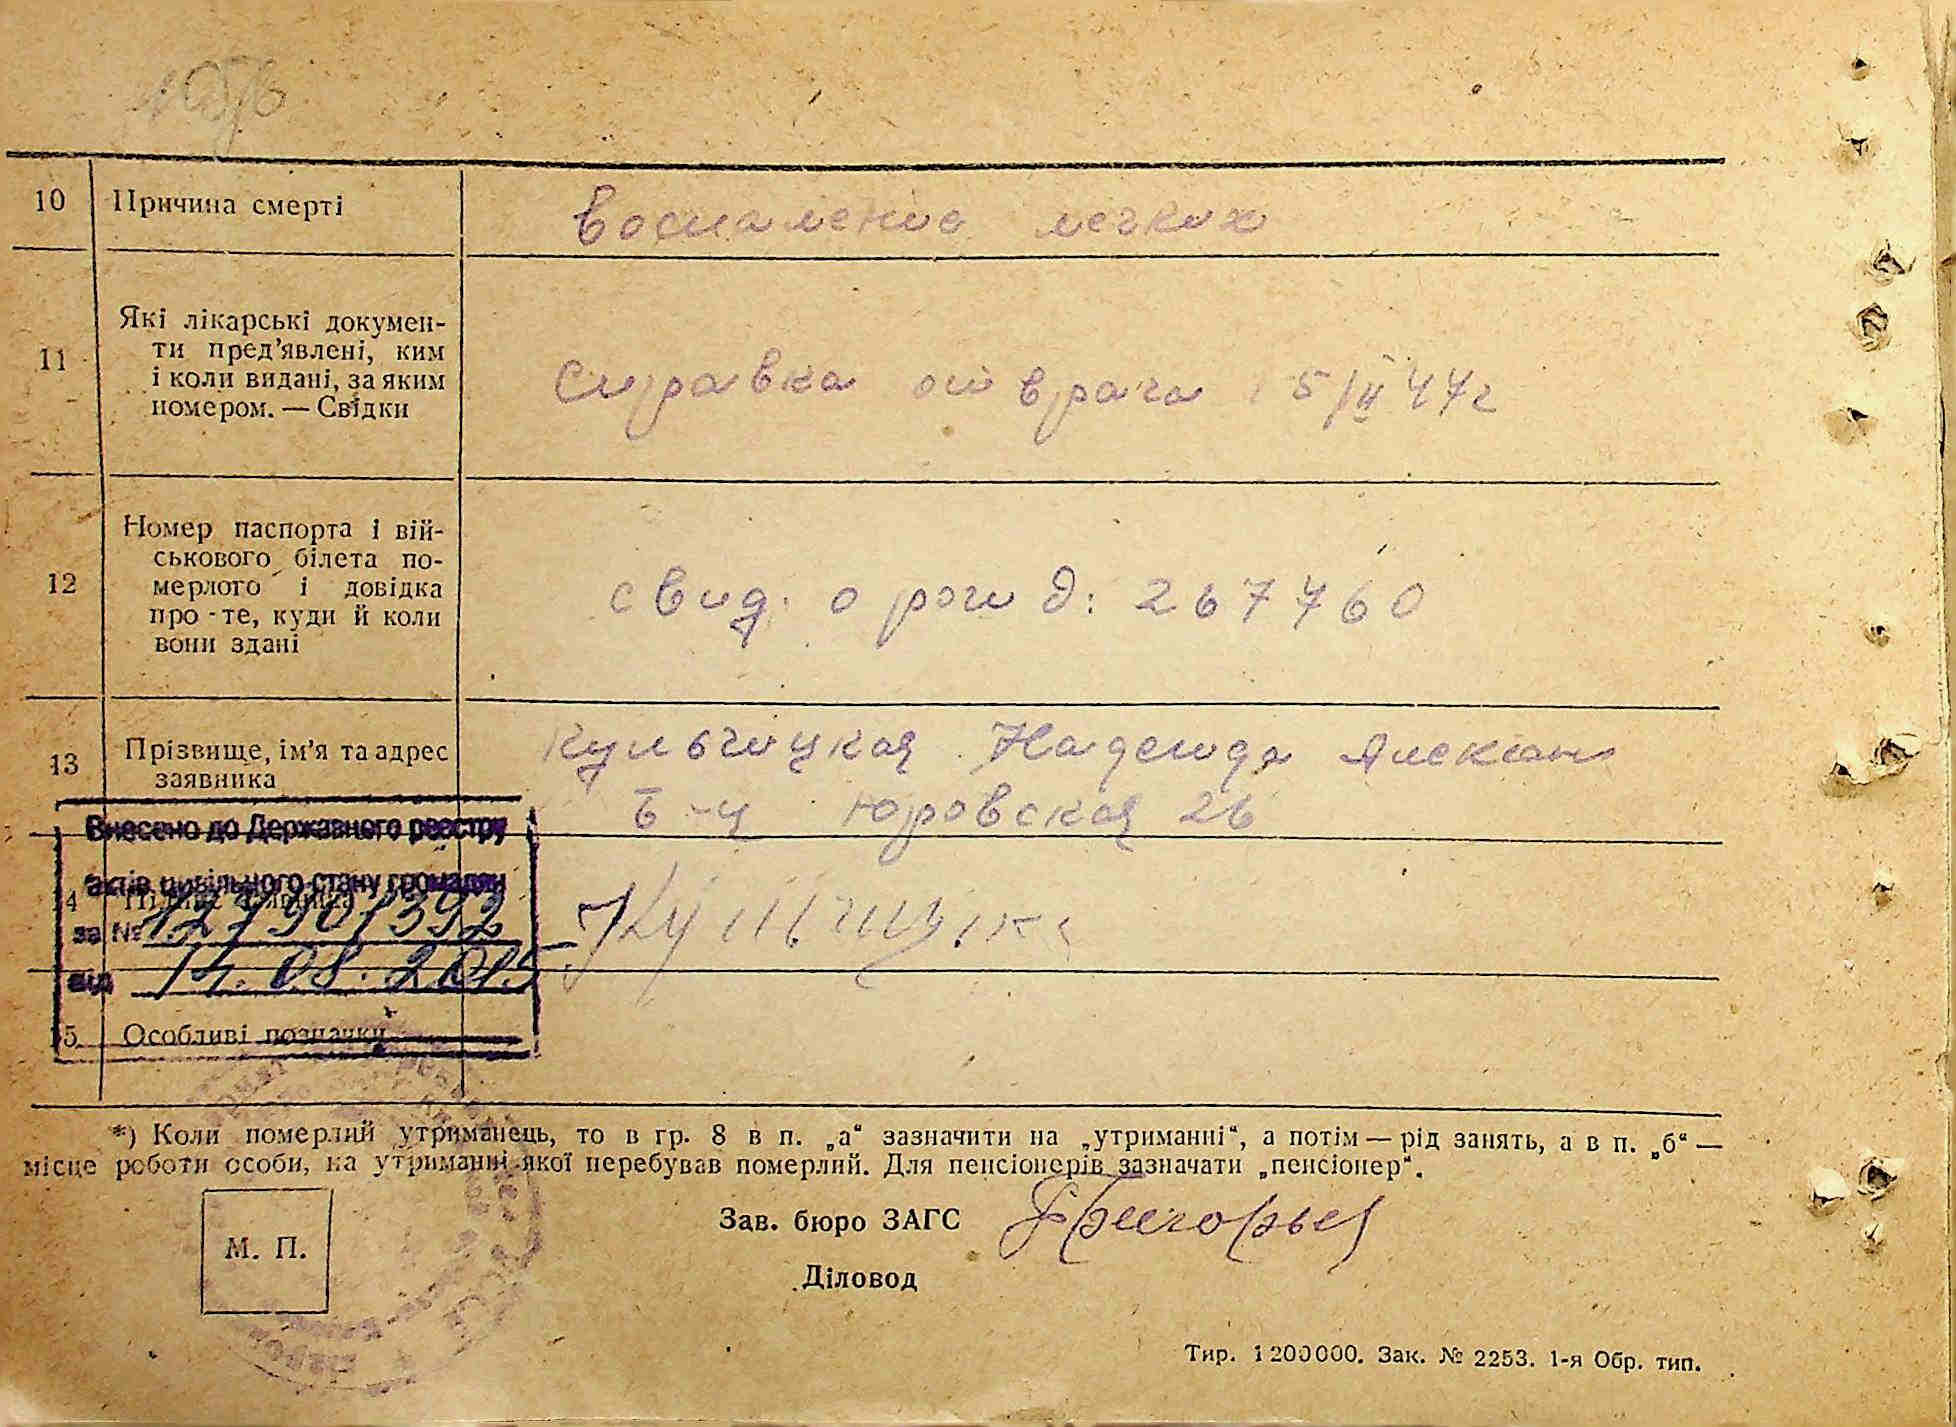 10 Причина смерті воспаление легких
11 Які лікарські докумен-
ти пред'явлені, ким
і коли видані, за яким
номером. — Свідки
справка от врача 5/II 44г
12 Номер паспорта і вій-
ськового білета по-
мерлого і довідка
про-те, куди й коли
вони здані
свид. о рожд: 267760
13 Прізвище, ім'я та адрес
заявника
Кульчицкая Надежда Алексан
Б-ц Юровская 26
Внесено до Державного реєстру
актів цивільного стану громадян
за №
від 14.08.2015
14 Підпис заявника
15 Особливі позначки
*) Коли померлий утриманець, то в гр. 8 в п. „а“ зазначити на „утриманні“, а потім — рід занять, а в п. „б“ —
місце роботи особи, на утриманні якої перебував померлий. Для пенсіонерів зазначати „пенсіонер“.
М. П.
Зав. бюро ЗАГС
Діловод
Тир. 1200000. Зак. № 2253. 1-я Обр. тип.